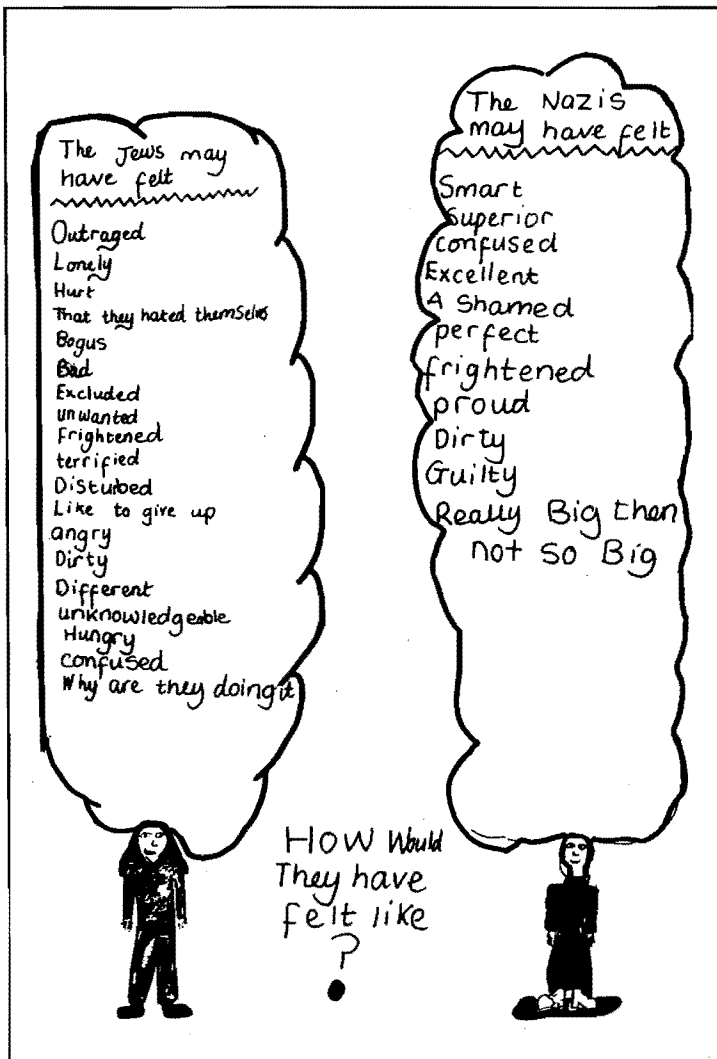 The Jews may
have felt
Outraged
Lonely
Hurt
That they hated themselves
Bogus
Bad
Excluded
unwanted
Frightened
terrified
Disturbed
Like to give up
angry
Dirty
Different
unknowledgeable
Hungry
confused
Why are they doing it
The Nazis
may have felt
Smart
Superior
confused
Excellent
A Shamed
perfect
frightened
proud
Dirty
Guilty
Really Big then
not so Big
HOW Would
They have
felt like
?